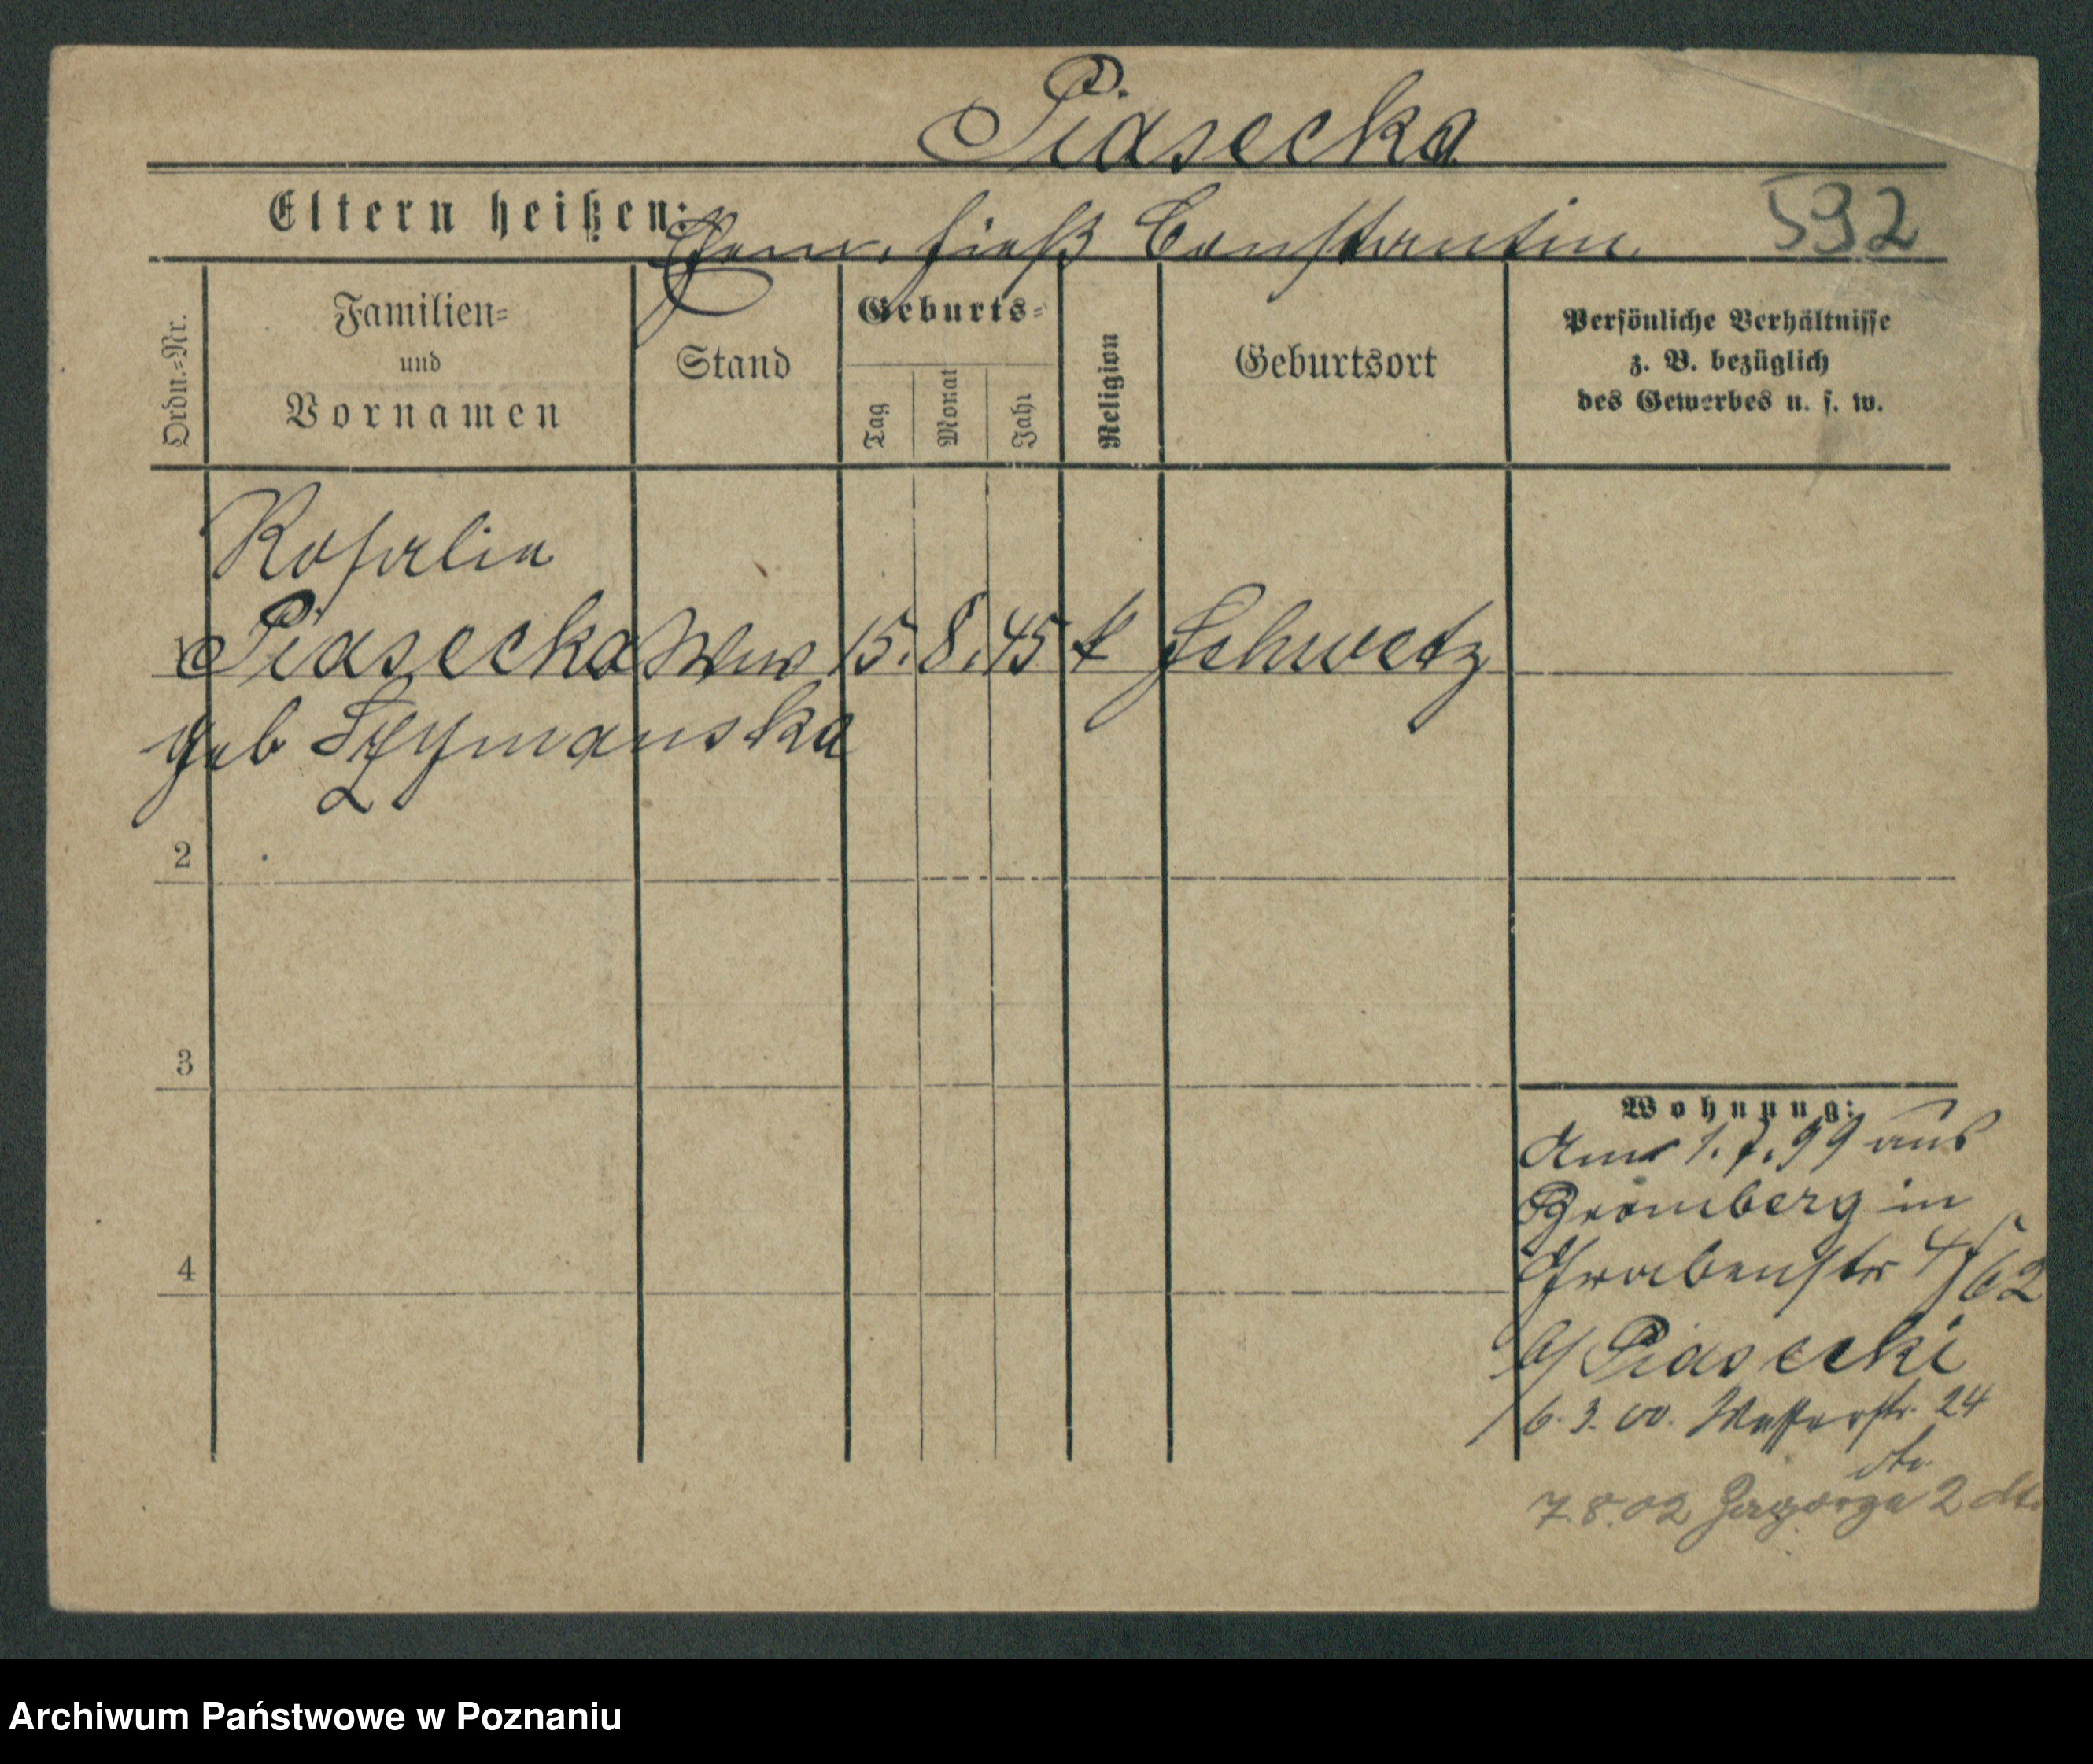 Piasecka
Eltern heißen:
Gem. hieß Constantin
592
Ordn.=Nr.
Familien=
und
Vornamen
Stand
Geburts=
Tag
Monat
Jahr
Religion
Geburtsort
Persönliche Verhältnisse
z. B. bezüglich
des Gewerbes u. s. w.
Rosalia
1 Piasecka Wwe 15. 8. 45 k Schwetz
geb Szymanska
2
3
4
Wohnung:
Am 1. 7. 99 aus
Bromberg in
Grabenstr 4/5 62
b/ Piasecki
6. 3. 00. Wasserstr. 24
dto
7. 8. 02 Zagorze 2 dto
Archiwum Państwowe w Poznaniu